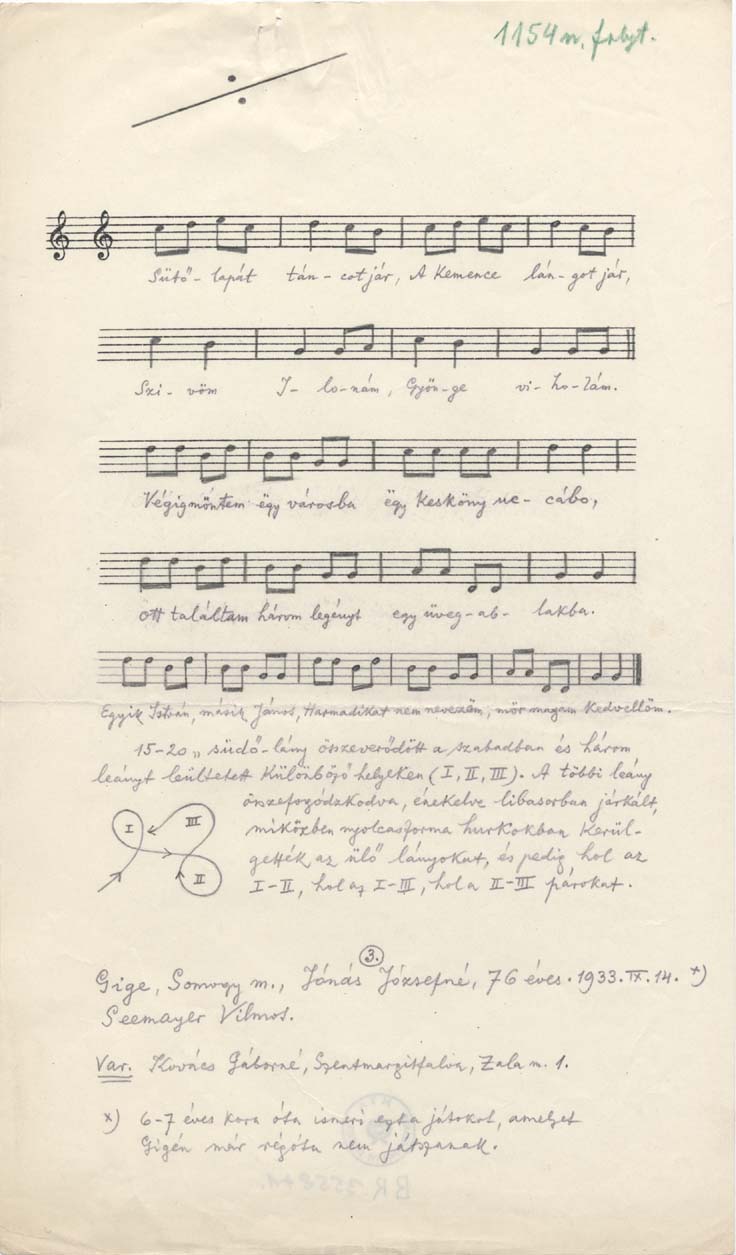 1154 n. folyt.
Sütő-lapát tán-cot jár, A Kemence lán-got jár,
Szi-vöm I-lo-nám, Gyön-ge vi-ho-lám.
Végigmöntem ëgy városba ëgy Kesköny uc-cábo,
Ott találtam három legényt egy üveg-ab-lakba.
Egyik István, másik János, Harmadikat nem nevezëm, mör magam Kedvellöm.
15-20 „südő-lány összeverődött a szabadban és három
leányt leültetett Különböző helyeken (I, II, III). A többi leány
összefogódzkodva, énekelve libasorban járkált,
miközben nyolcasforma hurkokban Kerül-
gették az ülő lányokat, és pedig hol az
I-II, hol az I-III, hol a II-III párokat.
I III
II
3.
Gige, Somogy m., Jónás Józsefné, 76 éves. 1933. IX. 14. x)
Seemayer Vilmos.
Var. Kovács Gáborné, Szentmargitfalva, Zala m. 1.
x) 6-7 éves kora óta ismeri ezt a játokot, amelyet
Gigén már régóta nem játszanak.